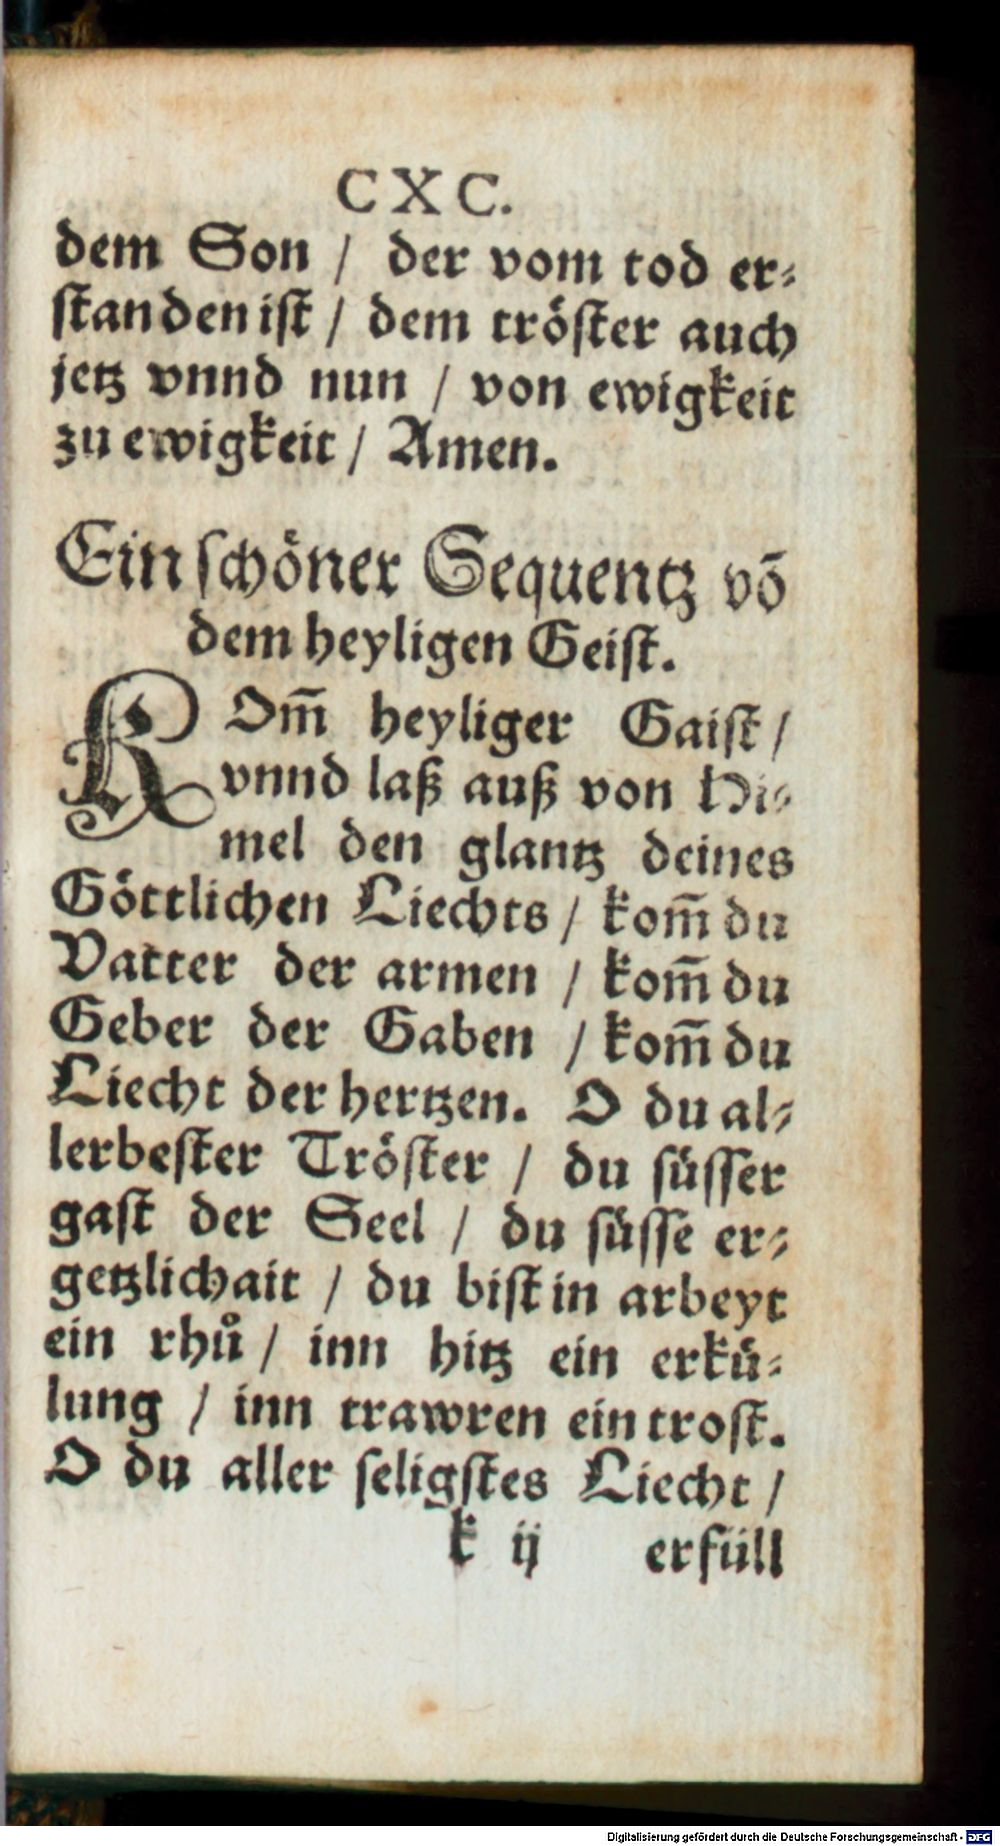 CXC.
dem Son / der vom tod er⸗
ſtanden iſt / dem tröſter auch
jetz vnnd nun / von ewigkeit
zu ewigkeit / Amen.
Ein ſchöner Sequentz võ
dem heyligen Geiſt.
KOm̃ heyliger Gaiſt /
vnnd laß auß von Hi⸗
mel den glantz deines
Göttlichen Liechts / kom̃ du
Vatter der armen / kom̃ du
Geber der Gaben / kom̃ du
Liecht der hertzen. O du al⸗
lerbeſter Tröſter / du ſüſſer
gaſt der Seel / du ſüſſe er⸗
getzlichait / du biſt in arbeyt
ein rhů / inn hitz ein erkü⸗
lung / inn trawren ein troſt.
O du aller ſeligſtes Liecht /
k ij erfüll
Digitalisierung gefördert durch die Deutsche Forschungsgemeinschaft - DFG